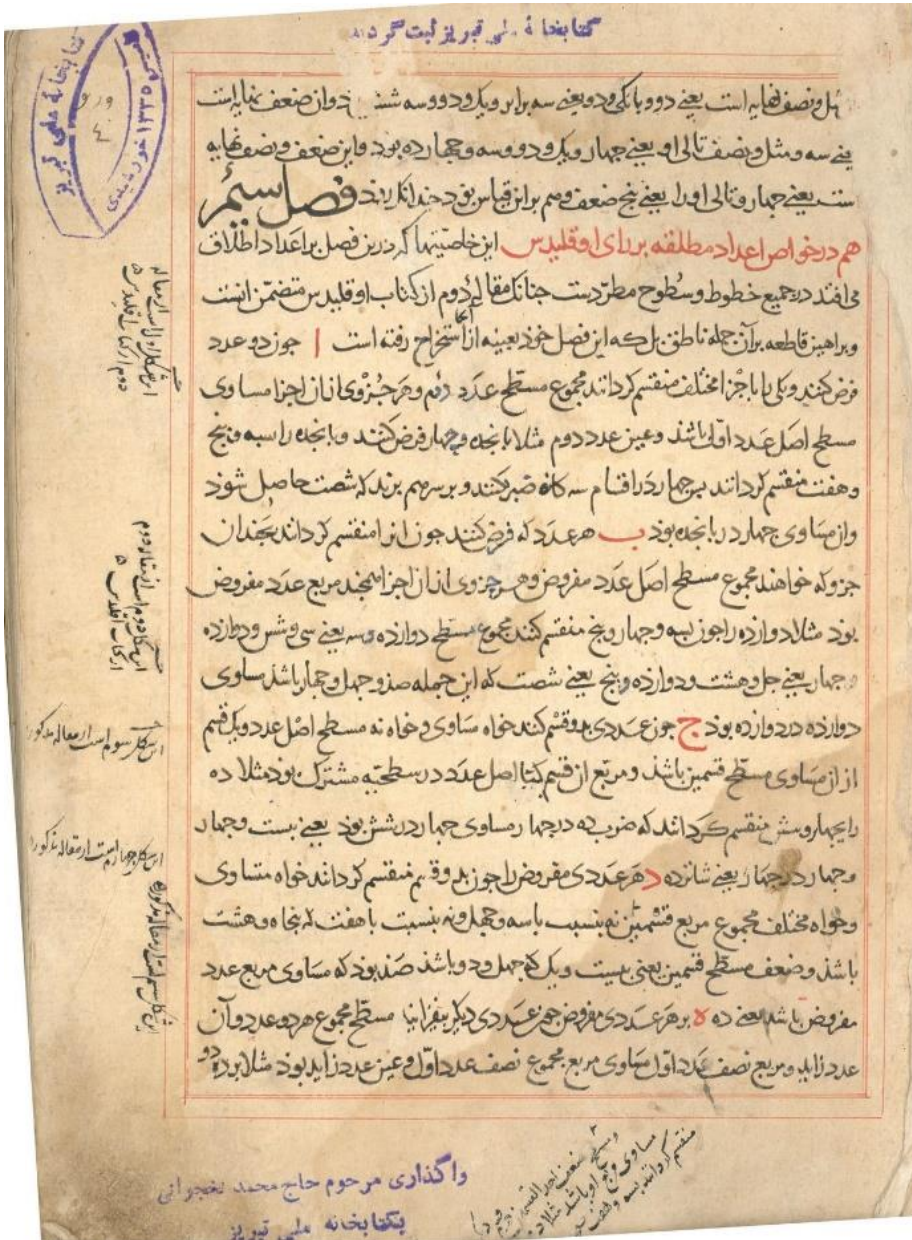 کتابخانهٔ ملی تبریز ثبت گردید
کتابخانه ملی تبریز
مثل و نصف نهایه است یعنی دو و باز یکی و دو یعنی سه برابر و یک و دو و سه شش و آن ضعف نهایه است
یعنی سه و مثل و نصف تالی او یعنی چهار و یک و دو و سه و چهار ده بود و این ضعف و نصف نهایه
ست یعنی چهار و تالی او را یعنی پنج ضعف و هم بر این قیاس بود چندانک رانند فصل سیم
هم در خواص اعداد مطلقه بر رای اوقلیدس این خاصیتها که درین فصل بر اعداد اطلاق
می افتد در جمیع خطوط و سطوح مطردست چنانک مقالهٔ دوم از کتاب اوقلیدس متضمن انست
و براهین قاطعه بر آن جمله ناطق بل که این فصل خود بعینه از آنجا استخراج رفته است ا جون دو عدد
فرض کنند و یکی را باجزا مختلف منقسم کردانند مجموع مسطح عدد دوم و هر جزوی از ان اجزا مساوی
مسطح اصل عدد اول باشد و عین عدد دوم مثلا پانجده و چهار فرض کنند و پانجده را بسه و پنج
و هفت منقسم کردانند پس چهار در اقسام سه کانه ضرب کنند و بر سر هم برند که شصت حاصل شود
و ان مساوی چهار در پانجده بود ب هر عدد که فرض کنند جون انرا منقسم کردانند بچندان
جزو که خواهند مجموع مسطح اصل عدد مفروض و هر جزوی از ان اجزا همچند مربع عدد مفروض
بود مثلا دوازده را جون بسه و چهار و پنج منقسم کنند مجموع مسطح دوازده و سه یعنی سی و شش و دوازده
و چهار یعنی چل و هشت و دوازده و پنج یعنی شصت که این جمله صد و چهل و چهار باشد مساوی
دوازده در دوازده بود ج جون عددی بدو قسم کنند خواه مساوی و خواه نه مسطح اصل عدد و یک قسم
از ان مساوی مسطح قسمین باشد و مربع ان قسم کثا اصل عدد در سطحیه مشترک بود مثلا ده
را بچهار و شش منقسم کردانند که ضرب ده در چهار مساوی چهار در شش بود یعنی بیست و چهار
و چهار در چهار یعنی شانزده د هر عددی مفروض را جون بدو قسم منقسم کردانند خواه متساوی
و خواه مختلف مجموع مربع قسمین نه بنسبت با سه و چهل و نه بنسبت با هفت که پنجاه و هشت
باشد و ضعف مسطح قسمین یعنی بیست و یک که چهل و دو باشد صد بود که مساوی مربع عدد
مفروض باشد یعنی ده ه بر هر عددی مفروض جون عددی دیکر بیفزایند مسطح مجموع هر دو عدد و آن
عدد زاید و مربع نصف عدد اول مساوی مربع مجموع نصف عدد اول و عین عدد زاید بود مثلا بر ده دو
این شکل اول است از مقاله
دوم از کتاب اقلیدس
این شکل دوم است از مقاله دوم
از کتاب اقلیدس
این شکل سوم است از مقاله مذکوره
این شکل چهارم است از مقاله مذکوره
این شکل ششم است از مقاله مذکوره
مساوی
منقسم کردانند بسه و هفت
واگذاری مرحوم حاج محمد نخجوانی
بکتابخانه ملی تبریز